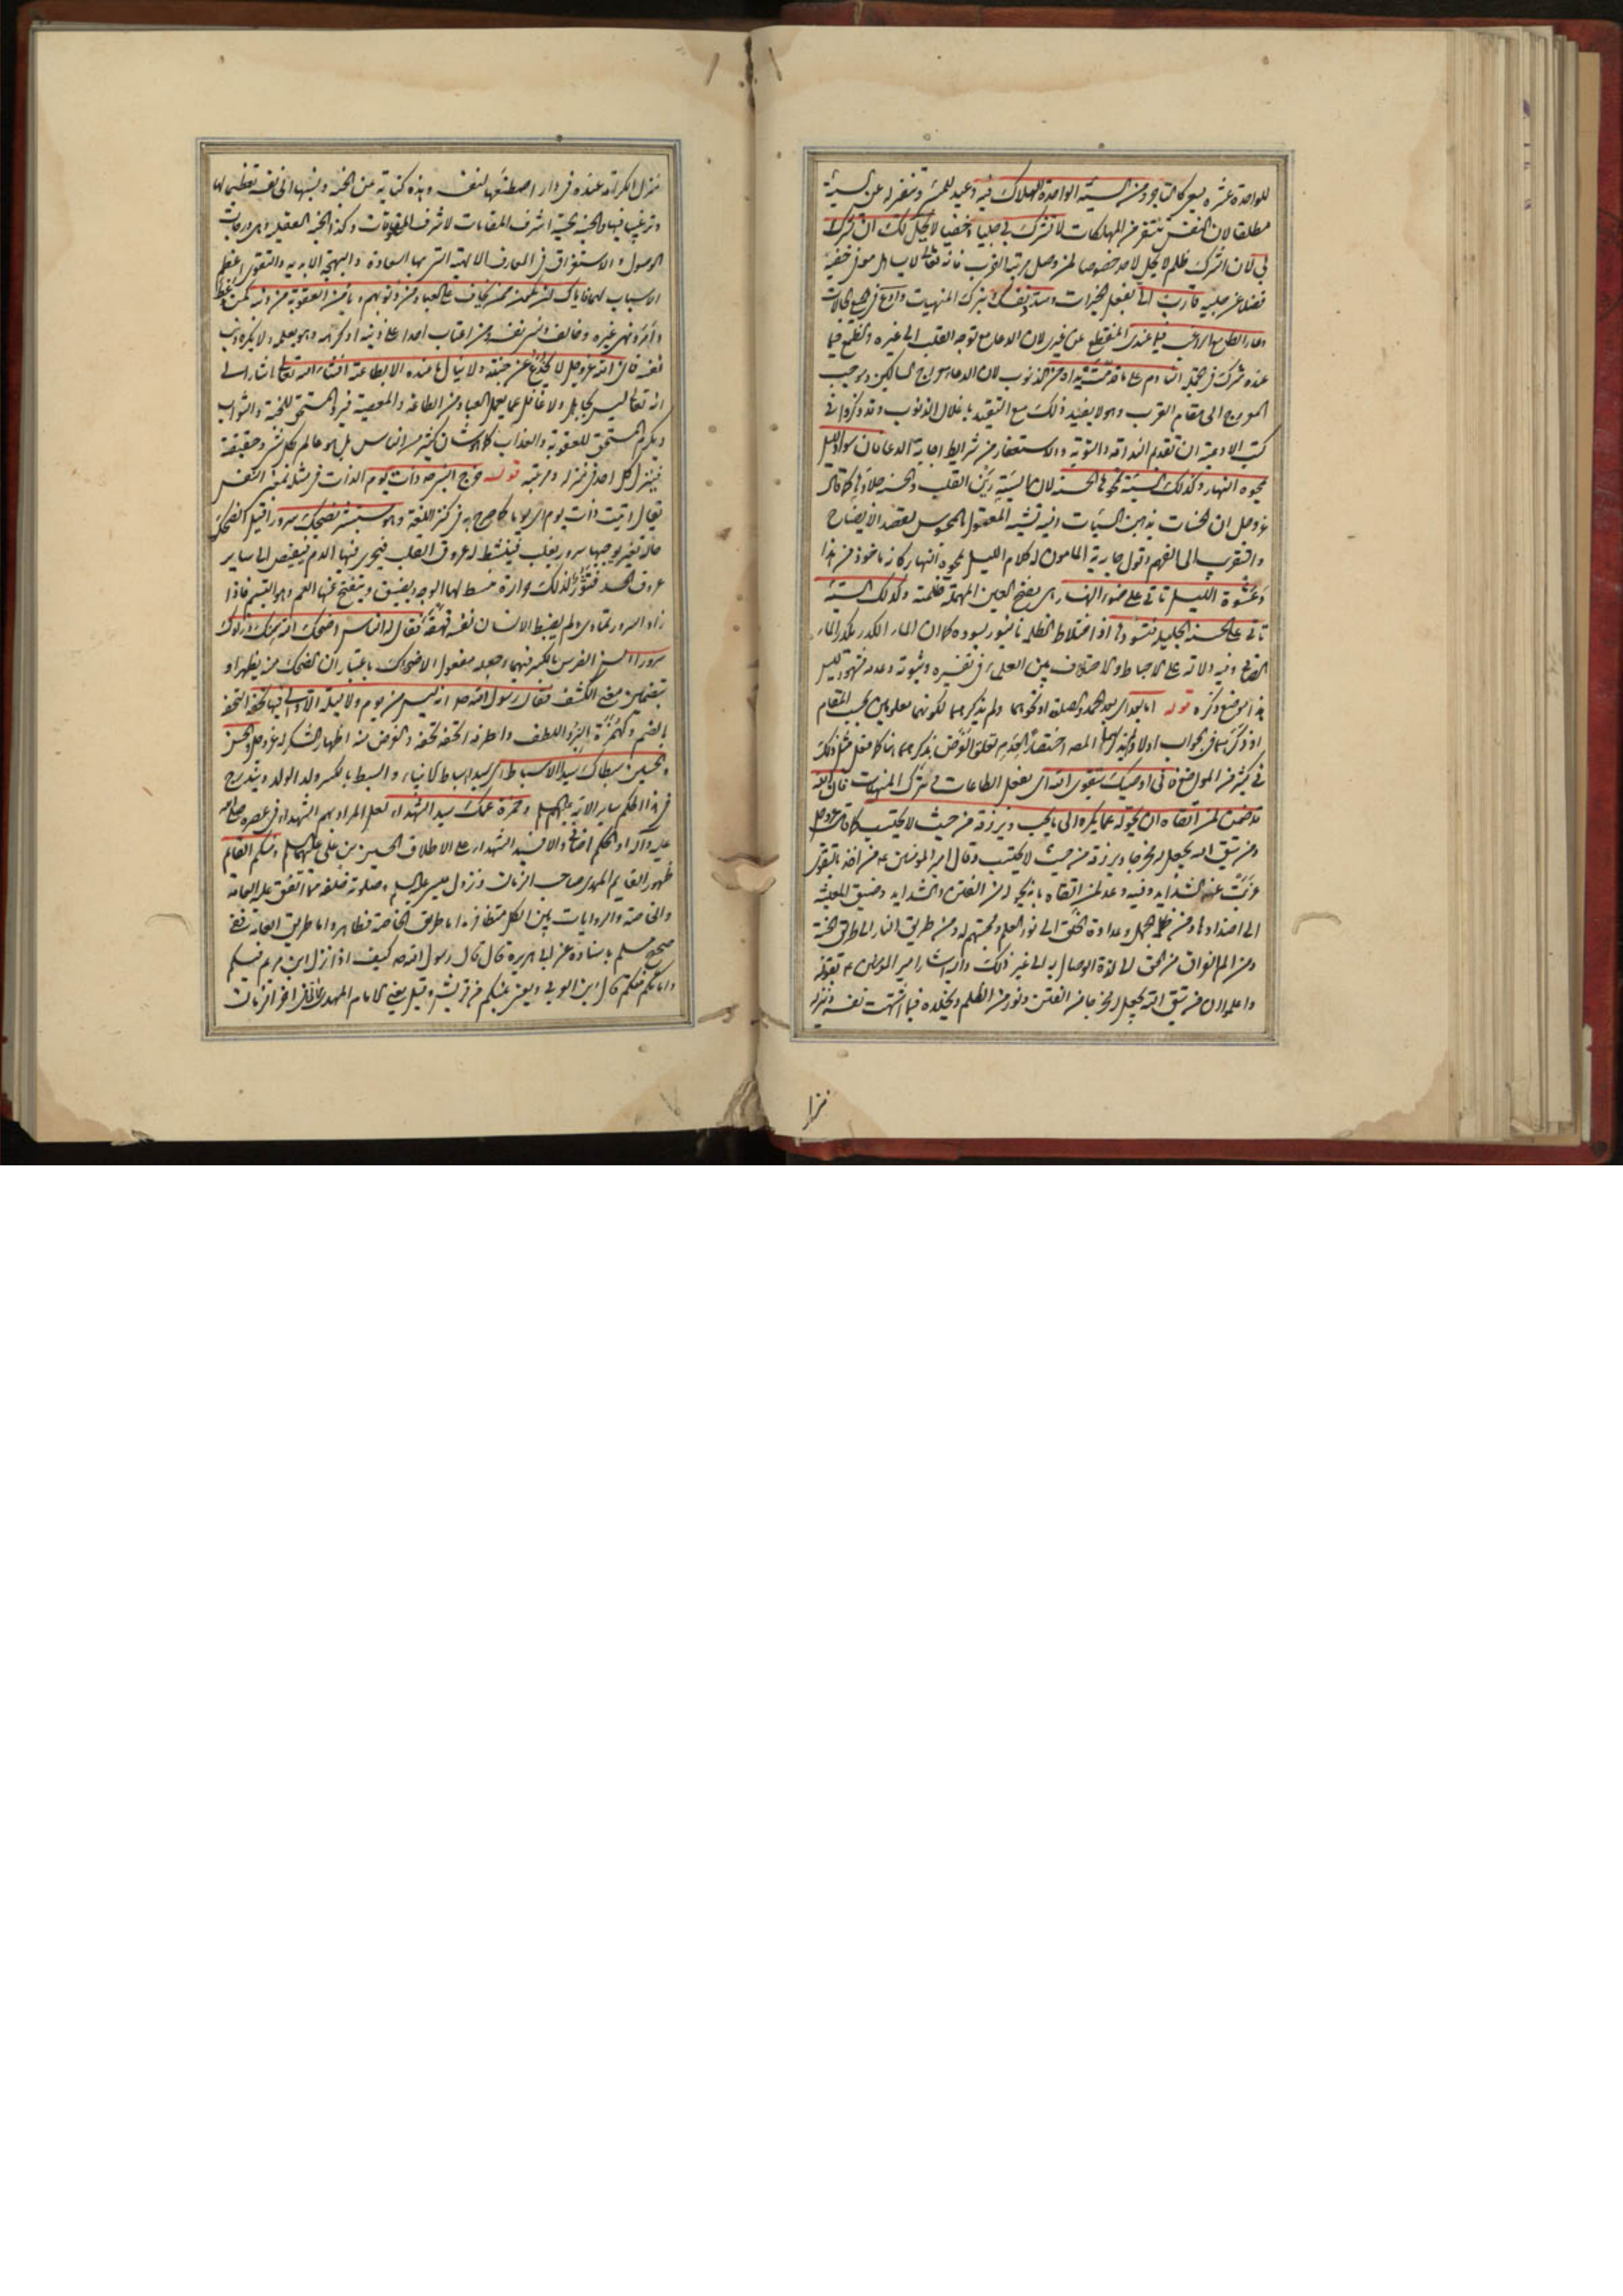 للواحدة عشرة سبع كما قد يوجد من السيئة الواحدة الهلاك فيه وعيد للمسيء وتنفير له عن السيئة
مطلقا لان النفس تتنفر من المهلكات لا تشرك بي جليا وخفيا لا يحل لك ان تشرك
بي لان الشرك ظلم لا يحل لاحد خصوصا لمن وصل مرتبة القرب فانه تعالى
فضلا عن جلية قارب اي بفعل الخيرات وسدد نفسك بترك المنهيات وادع في جميع الحالات
دعاء الطامع الراغب فيما عندي المنقطع عن غيري لان الدعاء مع توجه القلب الى غيره والطمع فيما
عنده شرك في النادم على ما قدمت يداه من الذنوب لان الدعاء معراج السالكين وموجب
العروج الى مقام القرب وهو لا يفيد ذلك مع التقيد باغلال الذنوب وقد ذكروا في
كتب الادعية ان تقدم الندامة والتوبة والاستغفار من شرايط اجابة الدعا فان سواد الليل
يمحوه النهار وكذلك السيئة تمحوها الحسنة لان السيئة رين القلب والحسنة جلاؤها كما قال
عز وجل ان الحسنات يذهبن السيئات وفيه تشبيه المعقول بالمحسوس لقصد الايضاح
والتقريب الى الفهم وقول جارية المامون له كلام الليل يمحوه النهار كانه ماخوذ من هذا
وعشوة الليل تاتي على ضوء النهار هي بفتح العين المهملة ظلمته وكذلك السيئة
تاتي على الحسنة الجليلة فتسودها اذ اختلاط الظلمة بالنور يسوده كما ان الماء الكدر يكدر الماء
الصافي وفيه دلالة على الاحباط والاختلاف بين العلماء في تفسيره وثبوته وعدمه مشهور ليس
هذا موضع ذكره قوله اما بعد اي بعد الحمد والصلوة او نحوهما ولم يذكرهما لكونهما معلومين بحسب المقام
او ذكرهما في الجواب اولا ولم يذكرهما المصنف اختصارا لعدم تعلق الغرض بذكرهما هنا كما فعل مثل ذلك
في كثير من المواضع فاني اوصيك بتقوى الله اي بفعل الطاعات وترك المنهيات فان الله
قد ضمن لمن اتقاه ان يحوله عما يكره الى ما يحب ويرزقه من حيث لا يحتسب كما قال عز وجل
ومن يتق الله يجعل له مخرجا ويرزقه من حيث لا يحتسب وقال امير المؤمنين ع من اخذ بالتقوى
عزبت عنه الشدايد وفيه وعد لمن اتقاه بانه ينجيه من الفتن والشدايد وضيق المعيشة
الى اضدادها ومن ظلمة الجهل وعداوة الخلق الى نور العلم ومحبتهم له ومن طريق النار الى طريق الجنة
ومن الم الفراق من الحق الى لذة الوصال به الى غير ذلك واليه اشار امير المؤمنين ع بقوله
واعلموا ان من يتق الله يجعل له مخرجا من الفتن ونورا من الظلم ويخلده فيما اشتهت نفسه وينزله
منزل
منزل الكرامة عنده في دار اصطنعها لنفسه وهذه كناية عن الجنة ونسبها الى نفسه تعظيما لها
وترغيبا فيها والجنة الحسية اشرف المقامات لاشرف المخلوقات وكذا الجنة العقلية وهي درجات
الوصول والاستغراق في المعارف الالهية التي بها السعادة والبهجة الابدية والتقوى اعظم
الاسباب لهما فاياك ان تكون ممن يخاف على العباد من ذنوبهم ويامن العقوبة من ذنبه
نفسه فان الله عز وجل لا يخدع عن جنته ولا ينال ما عنده الا بطاعته انشاء الله تعالى اشار الى
انه تعالى ليس بجاهل ولا غافل عما يعمل العباد من الطاعة والمعصية المستحق للجنة والثواب
ويكرم المستحق للعقوبة والعذاب كما هو شان كثير من الناس بل هو عالم بكل شيء وحقيقته
فينزل كل احد في منزله ومرتبته قوله خرج النبي ص ذات يوم الذات في مثله بمعنى النفس
يقال اتيته ذات يوم اي يوما كما صرح به في كنز اللغة وهو مستبشر يضحك سرورا قيل الضحك
حالة تغير يوجبها سرور يغلب فينبسط له عروق القلب فيجري فيها الدم فيفيض الى ساير
عروق الجسد فتثور لذلك حرارة فينبسط لها الوجه ويضيق ويتفتح عنها الفم وهو التبسم فاذا
زاد السرور وتمادى ولم يضبط الانسان نفسه قهقه فقال له الناس اضحك الله سنك وزادك
سرورا السن الضرس بالكسر فيهما وجعله مفعول الاضحاك باعتبار ان الضحك منه يظهر او
بتضمين معنى الكشف فقال رسول الله ص انه ليس من يوم ولا ليلة الا ولي فيها تحفة التحفة
بالضم وكهمزة البر واللطف والطرفة الحفه تحفة والغرض منه اظهار الشكر له عز وجل والحسن
والحسين سبطاك سيدا الاسباط اي سيدا اسباط الانبياء والسبط بالكسر ولد الولد ويندرج
في هذا الحكم ساير الائمة عليهم السلم وحمزة عمك سيد الشهداء لعل المراد بهم الشهداء في عصره صلى الله
عليه وآله او الحكم اضافي والا فسيد الشهداء على الاطلاق الحسين بن علي عليهما السلم ومنكم القائم
ظهور القايم المهدي صاحب الزمان ونزول عيسى عليه السلم وصلوته خلفه مما اتفق عليه العامة
والخاصة والروايات بين الكل متظافرة اما طريق الخاصة فظاهر واما طريق العامة ففي
صحيح مسلم باسناده عن ابي هريرة قال قال رسول الله ص كيف اذا نزل ابن مريم فيكم
وامامكم منكم قال ابن العربي ويعني بمنكم من قريش وقيل يعني الامام المهدي الاتي في اخر الزمان